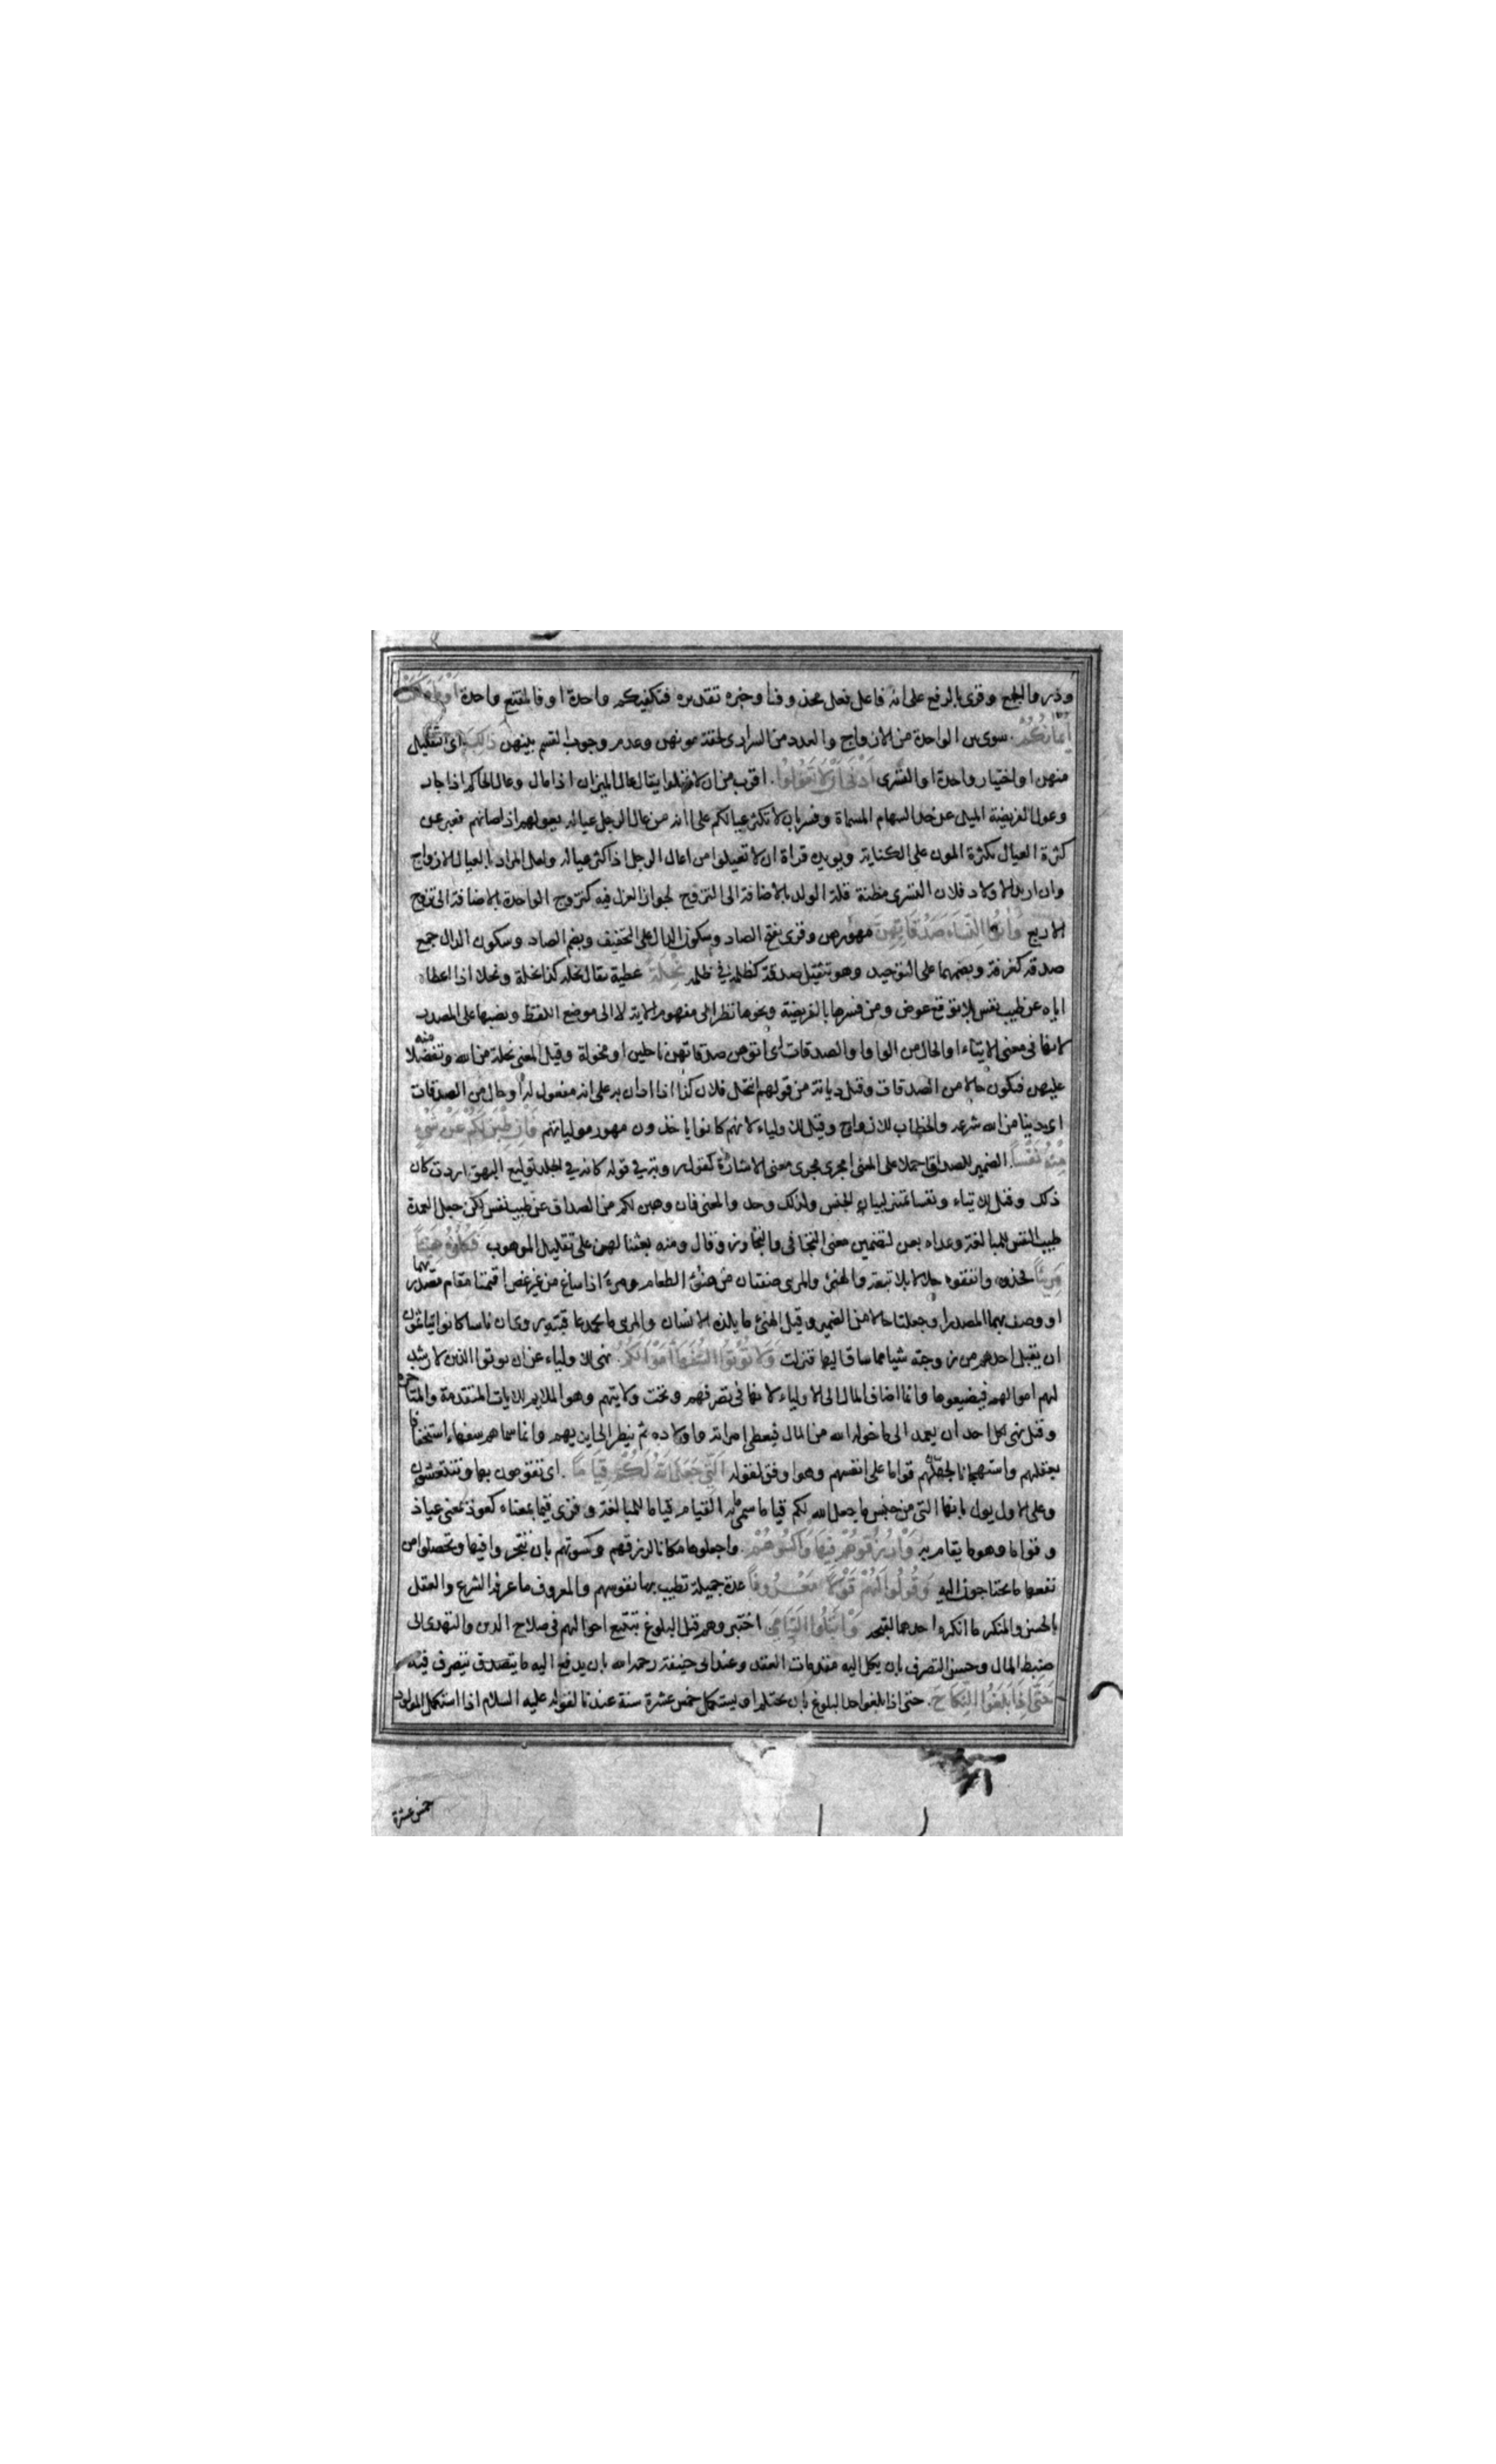 وذروا الجمع وقرئ بالرفع على انه فاعل فعل محذوف او خبره تقديره فتكفيكم واحدة او فالمقنع واحدة او ما ملكت
ايمانكم سوى بين الواحدة من الازواج والعدد من السرارى لخفة مونهن وعدم وجوب القسم بينهن ذلك اى التقليل
منهن او اختيار واحدة او التسرى ادنى الا تعولوا اقرب من ان لا تميلوا يقال عال الميزان اذا مال وعال الحاكم اذا جار
وعول الفريضة الميل عن حد السهام المسماة وفسر بان لا تكثر عيالكم على انه من عال الرجل عياله يعولهم اذا مانهم فعبر عن
كثرة العيال بكثرة المون على الكناية ويويده قراة ان لا تعيلوا من اعال الرجل اذا كثر عياله ولعل المراد بالعيال الازواج
وان اريد الاولاد فلان التسرى مظنة قلة الولد بالاضافة الى التزوج لجواز العزل فيه كتزوج الواحدة بالاضافة الى تزوج
الاربع واتوا النساء صدقاتهن مهورهن وقرئ بفتح الصاد وسكون الدال على التخفيف وبضم الصاد وسكون الدال جمع
صدقة كغرفة وبضمهما على التوحيد وهو تثقيل صدقة كظلمة في ظلمة نحلة عطية يقال نحله كذا نحلة ونحلا اذا اعطاه
اياه عن طيب نفس بلا توقع عوض ومن فسرها بالفريضة ونحوها نظر الى مفهوم الاية لا الى موضع اللفظ ونصبها على المصدر
لانها في معنى الايتاء او الحال من الواو او الصدقات اى اتوهن صدقاتهن ناحلين او منحولة وقيل المعنى نحلة من الله وتفضلا منه
عليهن فتكون حالا من الصدقات وقيل ديانة من قولهم انتحل فلان كذا اذا دان به على انه مفعول له او حال من الصدقات
اى دينا من الله شرعه والخطاب للازواج وقيل للاولياء لانهم كانوا ياخذون مهور مولياتهم فان طبن لكم عن شئ
منه نفسا الضمير للصداق حملا على المعنى او مجرى مجرى معنى الاشارة كقول روبة في قوله كانه في الجلد توليع البهق اردت كان
ذلك وقيل للايتاء ونفسا تمييز لبيان الجنس ولذلك وحد والمعنى فان وهبن لكم من الصداق عن طيب نفس لكن جعل العمدة
طيب النفس للمبالغة وعداه بعن لتضمين معنى التجافى والتجاوز وقال ومنه بعثا لهن على تقليل الموهوب فكلوه هنيئا
مريئا فخذوه وانفقوه حلالا بلا تبعة والهنئ والمرى صفتان من هنئ الطعام ومرئ اذا ساغ من غير غصص اقيمتا مقام مصدريهما
او وصف بهما المصدر او جعلتا حالا من الضمير وقيل الهنئ ما يلذه الانسان والمرى ما يحمد عاقبته روى ان ناسا كانوا يتاثمون
ان يقبل احدهم من زوجته شيا مما ساق اليها فنزلت ولا توتوا السفهاء اموالكم نهى للاولياء عن ان يوتوا الذين لا رشد
لهم اموالهم فيضيعوها وانما اضاف المال الى الاولياء لانها في تصرفهم وتحت ولايتهم وهو الملايم للايات المتقدمة والمتاخرة
وقيل نهى لكل احد ان يعمد الى ما خوله الله من المال فيعطى امراته واولاده ثم ينظر الى ايديهم وانما سماهم سفهاء استخفافا
بعقلهم واستهجانا لجعلهم قواما على انفسهم وهو اوفق لقوله التي جعل الله لكم قياما اى تقومون بها وتنتعشون
وعلى الاول يول بانها التي من جنس ما جعل الله لكم قياما سمى ما به القيام قياما للمبالغة وقرئ قيما بمعناه كعوذ بمعنى عياذ
وقواما وهو ما يقام به وارزقوهم فيها واكسوهم واجعلوها مكانا لرزقهم وكسوتهم بان تتجروا فيها وتحصلوا من
نفعها ما يحتاجون اليه وقولوا لهم قولا معروفا عدة جميلة تطيب بها نفوسهم والمعروف ما عرفه الشرع والعقل
بالحسن والمنكر ما انكره احدهما لقبحه وابتلوا اليتامى اختبروهم قبل البلوغ بتتبع احوالهم في صلاح الدين والتهدى الى
ضبط المال وحسن التصرف بان يكل اليه مقدمات العقد وعند ابى حنيفة رحمه الله بان يدفع اليه ما يتصدق فيه
حتى اذا بلغوا النكاح حتى اذا بلغوا حد البلوغ بان يحتلم او يستكمل خمس عشرة سنة عندنا لقوله عليه السلام اذا استكمل المولود
خمس عشرة